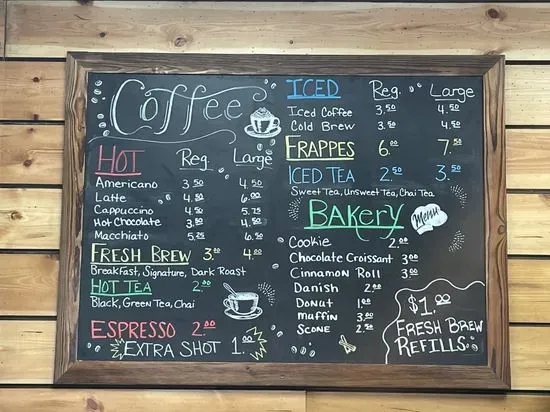 Coffee
HOT Reg. Large
Americano 3.50 4.50
Latte 4.50 6.00
Cappuccino 4.50 5.75
Hot Chocolate 3.50 4.50
Macchiato 5.25 6.50
FRESH BREW 3.00 4.00
Breakfast, Signature, Dark Roast
HOT TEA 2.00
Black, Green Tea, Chai
ESPRESSO 2.00
EXTRA SHOT 1.00
ICED Reg. Large
Iced Coffee 3.50 4.50
Cold Brew 3.50 4.50
FRAPPES 6.00 7.50
ICED TEA 2.50 3.50
Sweet Tea, Unsweet Tea, Chai Tea
BAKERY Menu
Cookie 2.00
Chocolate Croissant 3.00
Cinnamon Roll 3.00
Danish 2.00
Donut 1.00
Muffin 3.00
Scone 2.50
$1.00
FRESH BREW
REFILLS